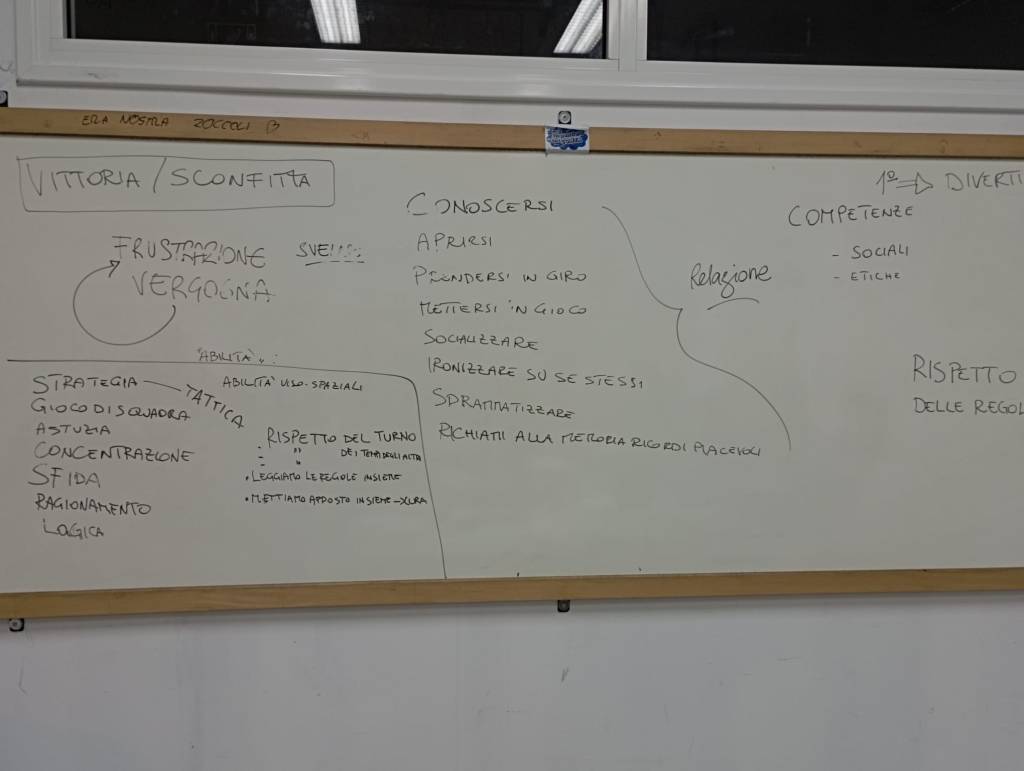 ERA NOSTRA ZOCCOLI
VITTORIA / SCONFITTA
FRUSTRAZIONE
VERGOGNA
"ABILITÀ" :
STRATEGIA
TATTICA
GIOCO DI SQUADRA
ASTUZIA
CONCENTRAZIONE
SFIDA
RAGIONAMENTO
LOGICA
ABILITÀ VISO-SPAZIALI
RISPETTO DEL TURNO
- " DEI TEMPI DEGLI ALTRI
- "
• LEGGIAMO LE REGOLE INSIEME
• METTIAMO APPOSTO INSIEME
CONOSCERSI
APRIRSI
PRENDERSI IN GIRO
METTERSI IN GIOCO
SOCIALIZZARE
IRONIZZARE SU SE STESSI
SDRAMMATIZZARE
RICHIAMI ALLA MEMORIA RICORDI PIACEVOLI
Relazione
1º ⇒ DIVERTI
COMPETENZE
- SOCIALI
- ETICHE
RISPETTO
DELLE REGOL